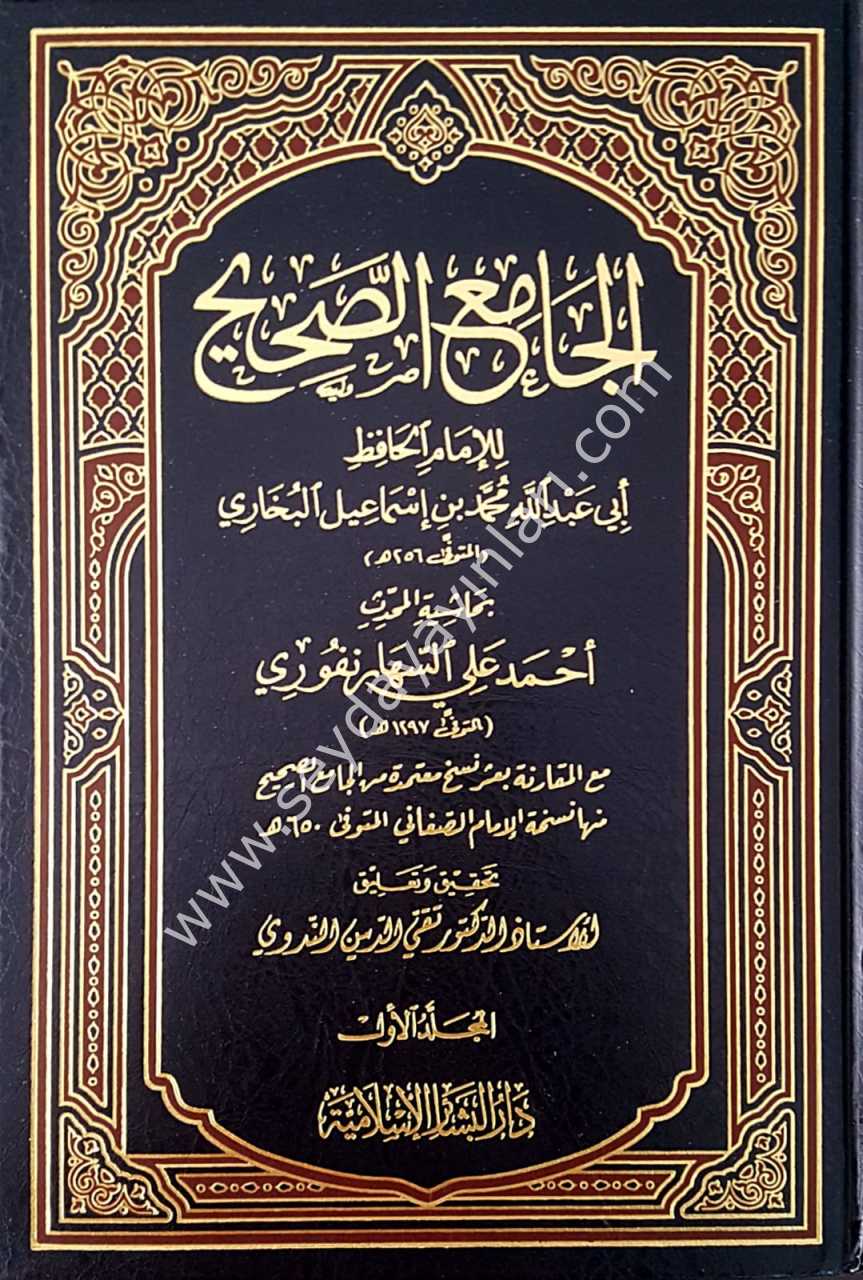 الجَامِعُ الصَّحِيحُ
لِلإِمَامِ الحَافِظِ
أَبِي عَبْدِ اللهِ مُحَمَّد بنِ إِسْمَاعِيل البُخَارِي
(المتوفى ٢٥٦ هـ)
بحَاشِيَةِ المُحَدِّثِ
أَحْمَد عَلِي السَّهَارَنْفُورِي
(المتوفى ١٢٩٧ هـ)
مع المقارنة بعشر نسخ معتمدة من الجامع الصحيح
منها نسخة الإمام الصغاني المتوفى ٦٥٠ هـ
تحقِيْق وَتعَليْق
الأستاذ الدكتور تقي الدين الندوي
المُجَلَّدُ الأَوَّل
دَارُ البَشَائِر الإِسْلَامِيَّة
www.seydayayinlari.com